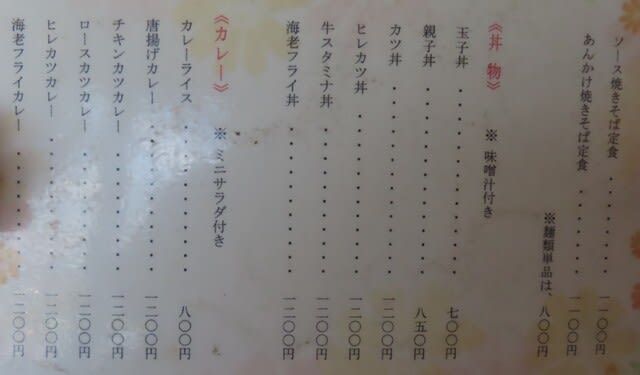 ソース焼きそば定食 ・・・・・・・・ 一一〇〇円
あんかけ焼きそば定食 ・・・・・・・ 一一〇〇円
※麺類単品は、八〇〇円
《丼 物》 ※ 味噌汁付き
玉子丼 ・・・・・・・・・・・・ 七〇〇円
親子丼 ・・・・・・・・・・・・ 八五〇円
カツ丼 ・・・・・・・・・・・・ 一二〇〇円
ヒレカツ丼 ・・・・・・・・・・ 一二〇〇円
牛スタミナ丼 ・・・・・・・・・ 一二〇〇円
海老フライ丼 ・・・・・・・・・ 一二〇〇円
《カレー》 ※ ミニサラダ付き
カレーライス ・・・・・・・・・ 八〇〇円
唐揚げカレー ・・・・・・・・・ 一二〇〇円
チキンカツカレー ・・・・・・・・ 一二〇〇円
ロースカツカレー ・・・・・・・・ 一二〇〇円
ヒレカツカレー ・・・・・・・・ 一二〇〇円
海老フライカレー ・・・・・・・ 一二〇〇円